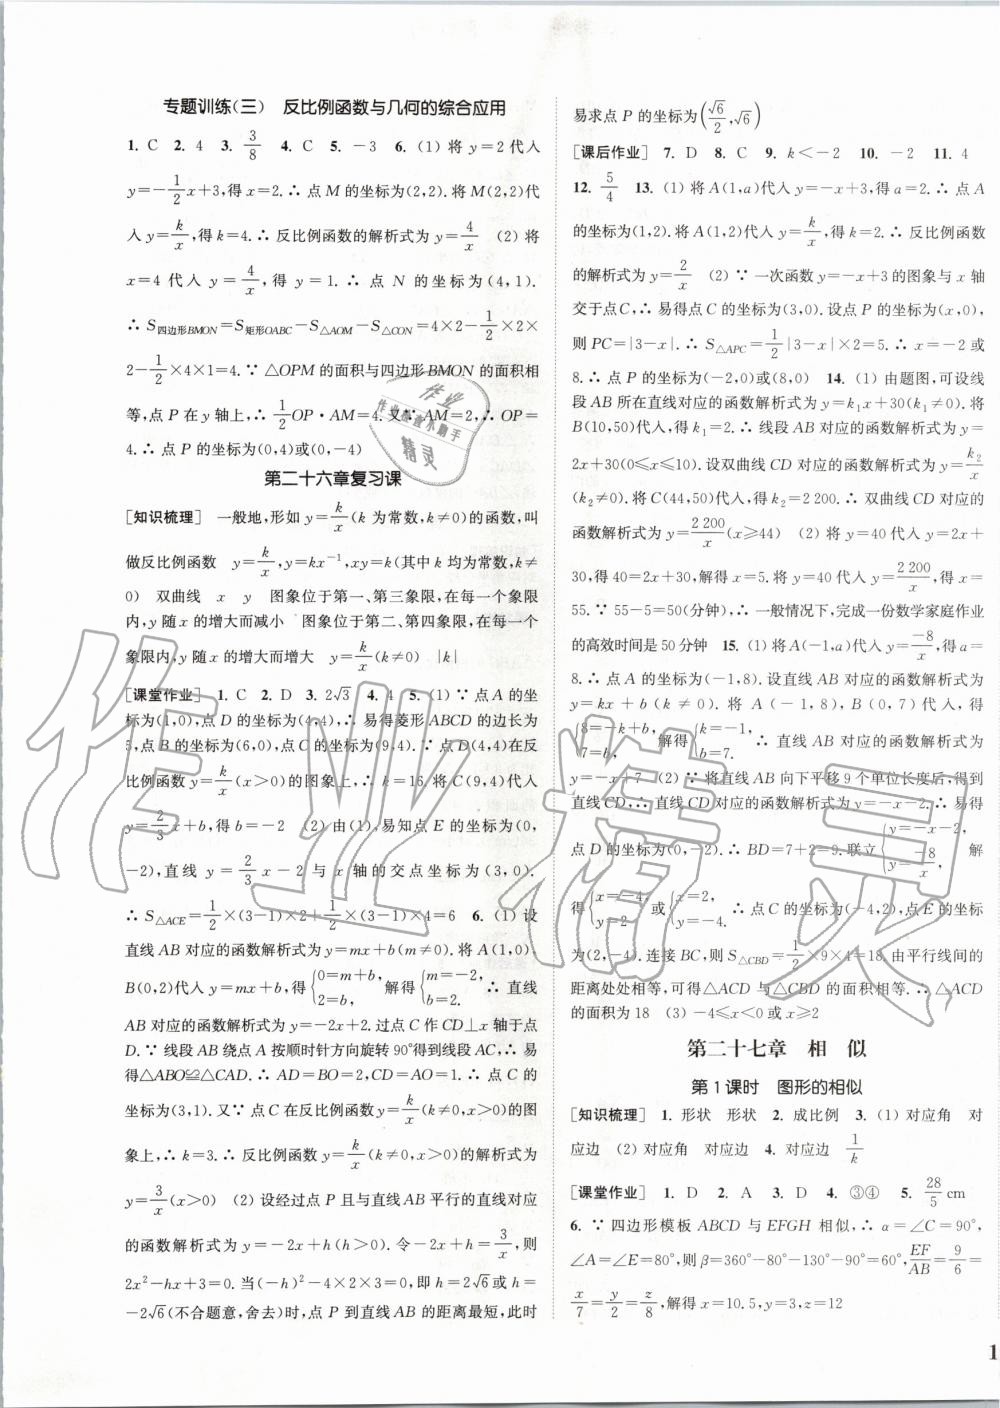 专题训练(三) 反比例函数与几何的综合应用
1. C 2. 4 3. 3/8 4. C 5. －3 6. (1) 将 y＝2 代入
y＝－1/2x＋3,得 x＝2.∴ 点 M 的坐标为(2,2).将 M(2,2)代
入 y＝k/x,得 k＝4.∴ 反比例函数的解析式为 y＝4/x (2) 将
x＝4 代入 y＝4/x,得 y＝1.∴ 点 N 的坐标为(4,1).
∴ S四边形BMON＝S矩形OABC－S△AOM－S△CON＝4×2－1/2×2×
2－1/2×4×1＝4.∵ △OPM 的面积与四边形 BMON 的面积相
等,点 P 在 y 轴上,∴ 1/2OP·AM＝4.又∵ AM＝2,∴ OP＝
4.∴ 点 P 的坐标为(0,4)或(0,－4)
第二十六章复习课
[知识梳理] 一般地,形如 y＝k/x(k 为常数,k≠0)的函数,叫
做反比例函数 y＝k/x,y＝kx⁻¹,xy＝k(其中 k 均为常数,k≠
0) 双曲线 x y 图象位于第一、第三象限,在每一个象限
内,y 随 x 的增大而减小 图象位于第二、第四象限,在每一个
象限内,y 随 x 的增大而增大 y＝k/x(k≠0) |k|
[课堂作业] 1. C 2. D 3. 2√3 4. 4 5. (1) ∵ 点 A 的坐
标为(1,0),点 D 的坐标为(4,4),∴ 易得菱形 ABCD 的边长为
5,点 B 的坐标为(6,0),点 C 的坐标为(9,4).∵ 点 D(4,4)在反
比例函数 y＝k/x(x＞0)的图象上,∴ k＝16.将 C(9,4)代入
y＝2/3x＋b,得 b＝－2 (2) 由(1),易知点 E 的坐标为(0,
－2),直线 y＝2/3x－2 与 x 轴的交点坐标为(3,0).
∴ S△ACE＝1/2×(3－1)×2＋1/2×(3－1)×4＝6 6. (1) 设
直线 AB 对应的函数解析式为 y＝mx＋b(m≠0).将 A(1,0)、
B(0,2)代入 y＝mx＋b,得{0＝m＋b, 2＝b, 解得{m＝－2, b＝2. ∴ 直线
AB 对应的函数解析式为 y＝－2x＋2.过点 C 作 CD⊥x 轴于点
D.∵ 线段 AB 绕点 A 按顺时针方向旋转 90°得到线段 AC,∴ 易
得△ABO≌△CAD.∴ AD＝BO＝2,CD＝AO＝1.∴ 点 C 的
坐标为(3,1).又∵ 点 C 在反比例函数 y＝k/x(k≠0,x＞0)的图
象上,∴ k＝3.∴ 反比例函数 y＝k/x(k≠0,x＞0)的解析式为
y＝3/x(x＞0) (2) 设经过点 P 且与直线 AB 平行的直线对应
的函数解析式为 y＝－2x＋h(h＞0).令－2x＋h＝3/x,得
2x²－hx＋3＝0.当(－h)²－4×2×3＝0,即 h＝2√6或 h＝
－2√6(不合题意,舍去)时,点 P 到直线 AB 的距离最短,此时
易求点 P 的坐标为(√6/2,√6)
[课后作业] 7. D 8. C 9. k＜－2 10. －2 11. 4
12. 5/4 13. (1) 将 A(1,a)代入 y＝－x＋3,得 a＝2.∴ 点 A
的坐标为(1,2).将 A(1,2)代入 y＝k/x,得 k＝2.∴ 反比例函数
的解析式为 y＝2/x (2) ∵ 一次函数 y＝－x＋3 的图象与 x 轴
交于点 C,∴ 易得点 C 的坐标为(3,0).设点 P 的坐标为(x,0),
则 PC＝|3－x|.∴ S△APC＝1/2|3－x|×2＝5.∴ x＝－2 或
8.∴ 点 P 的坐标为(－2,0)或(8,0) 14. (1) 由题图,可设线
段 AB 所在直线对应的函数解析式为 y＝k₁x＋30(k₁≠0).将
B(10,50)代入,得 k₁＝2.∴ 线段 AB 对应的函数解析式为 y＝
2x＋30(0≤x≤10).设双曲线 CD 对应的函数解析式为 y＝k₂/x
(k₂≠0),将 C(44,50)代入,得 k₂＝2 200.∴ 双曲线 CD 对应的
函数解析式为 y＝2 200/x(x≥44) (2) 将 y＝40 代入 y＝2x＋
30,得 40＝2x＋30,解得 x＝5.将 y＝40 代入 y＝2 200/x,得 x＝
55.∵ 55－5＝50(分钟),∴ 一般情况下,完成一份数学家庭作业
的高效时间是 50 分钟 15. (1) 将 A(－1,a)代入 y＝－8/x,得 a＝
8.∴ 点 A 的坐标为(－1,8).设直线 AB 对应的函数解析式为
y＝kx＋b(k≠0).将 A(－1,8)、B(0,7)代入,得
{8＝－k＋b, 7＝b, 解得{k＝－1, b＝7. ∴ 直线 AB 对应的函数解析式为
y＝－x＋7 (2) ∵ 将直线 AB 向下平移 9 个单位长度后,得到
直线 CD,∴ 直线 CD 对应的函数解析式为 y＝－x－2.∴ 易得
点 D 的坐标为(0,－2).∴ BD＝7＋2＝9.联立{y＝－x－2, y＝－8/x, 解
得{x＝－4, y＝2 或{x＝2, y＝－4. ∴ 点 C 的坐标为(－4,2),点 E 的坐标
为(2,－4).连接 BC,则 S△CBD＝1/2×9×4＝18.由平行线间的
距离处处相等,可得△ACD 与△CBD 的面积相等.∴ △ACD
的面积为 18 (3) －4≤x＜0 或 x≥2
第二十七章 相 似
第 1 课时 图形的相似
[知识梳理] 1. 形状 形状 2. 成比例 3. (1) 对应角 对
应边 (2) 对应角 对应边 4. 对应边 1/k
[课堂作业] 1. D 2. A 3. D 4. ③④ 5. 28/5 cm
6. ∵ 四边形模板 ABCD 与 EFGH 相似,∴ α＝∠C＝90°,
∠A＝∠E＝80°,则 β＝360°－80°－130°－90°＝60°,EF/AB＝9/6＝
x/7＝y/2＝z/8,解得 x＝10.5,y＝3,z＝12
1
作业精灵
作业
作业检查小助手
精灵